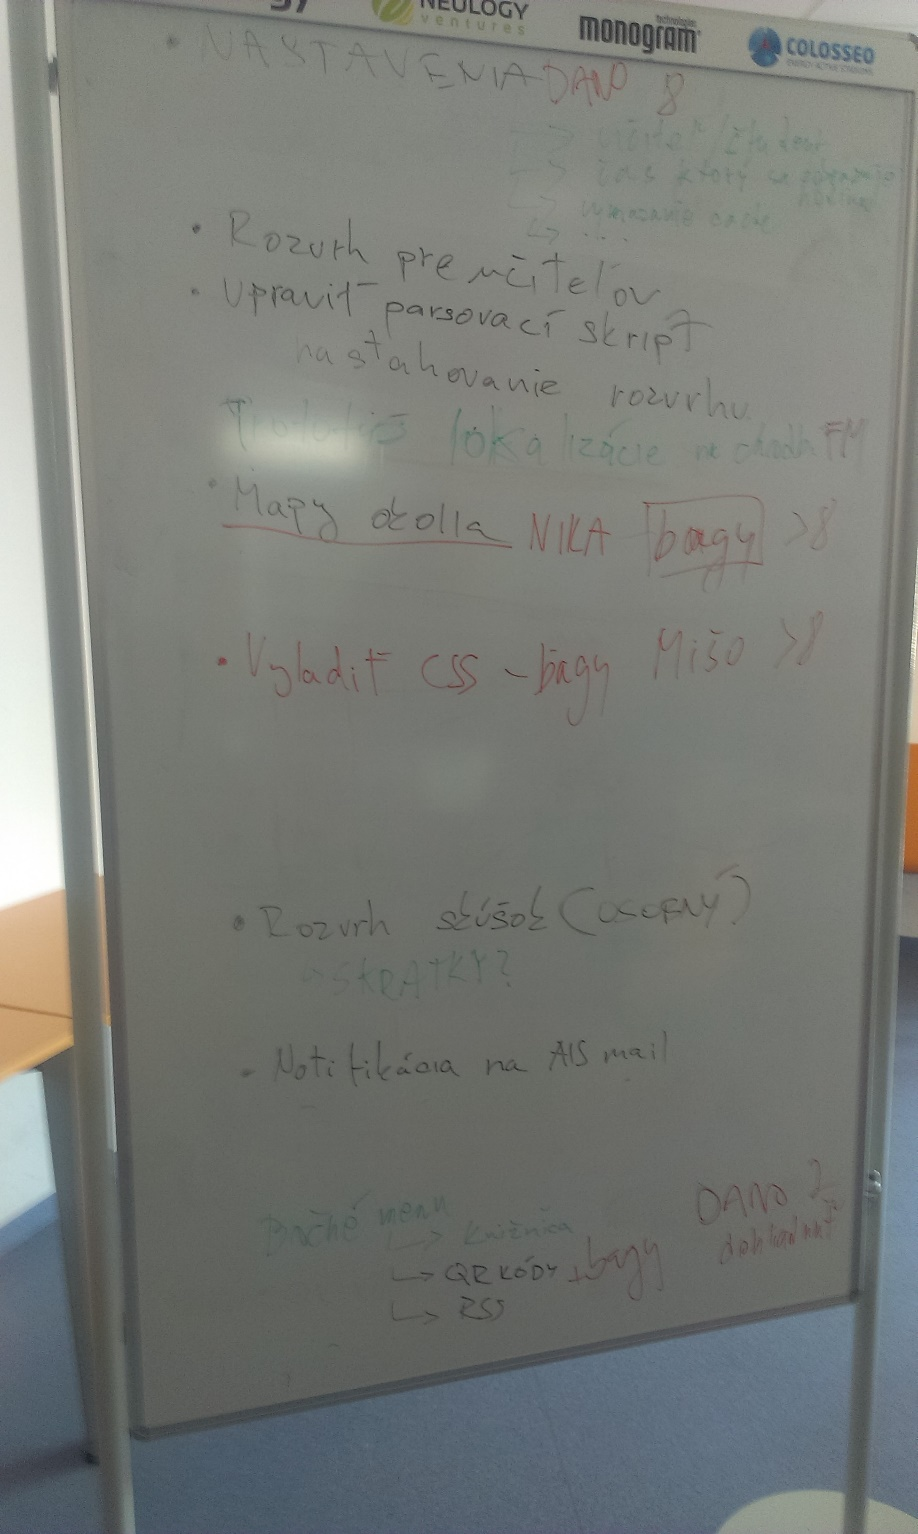 NEULOGY
ventures
technologies
monogram
COLOSSEO
• NASTAVENIA DANO 8
↳ učiteľ/študent
↳ čas ktorý sa
↳ vymazanie cache
↳ ...
• Rozvrh pre učiteľov
• Upraviť parsovací skript
na sťahovanie rozvrhu
lokalizácie na chodbe FM
• Mapy okolia NIKA bagy >8
• Vyladiť CSS - bagy Mišo >8
• Rozvrh skúšok (OSOBNÝ)
SKRATKY?
• Notifikácia na AIS mail
Bočné menu
↳ knižnica
↳ QR KÓDY + bagy
↳ RSS
DANO 2
dohliadnuť